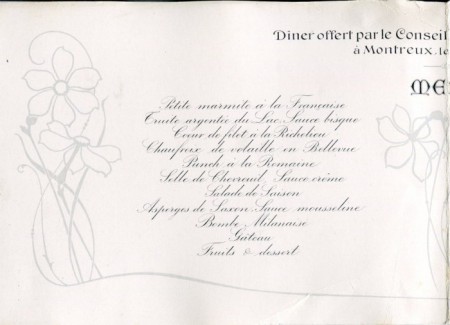 Dîner offert par le Conseil
à Montreux, le
ME
Petite marmite à la Française
Truite argentée du Lac Sauce bisque
Cœur de filet à la Richelieu
Chaufroix de volaille en Bellevue
Punch à la Romaine
Selle de Chevreuil, Sauce crème
Salade de Saison
Asperges de Saxon Sauce mousseline
Bombe Milanaise
Gâteau
Fruits & dessert